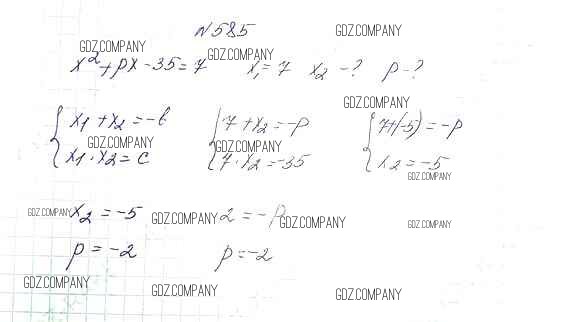 N585
GDZ.COMPANY GDZ.COMPANY
GDZ.COMPANY
x²+px-35=7 x₁=7 x₂-? p-?
GDZ.COMPANY
x₁+x₂=-b 7+x₂=-p 7+(-5)=-p
GDZ.COMPANY GDZ.COMPANY
x₁·x₂=c 7·x₂=-35 x₂=-5
GDZ.COMPANY
GDZ.COMPANY x₂=-5 GDZ.COMPANY 2=-p GDZ.COMPANY GDZ.COMPANY
p=-2 p=-2
GDZ.COMPANY GDZ.COMPANY GDZ.COMPANY